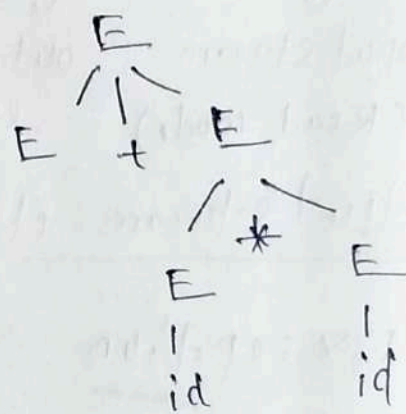 E
E + E
E * E
id id